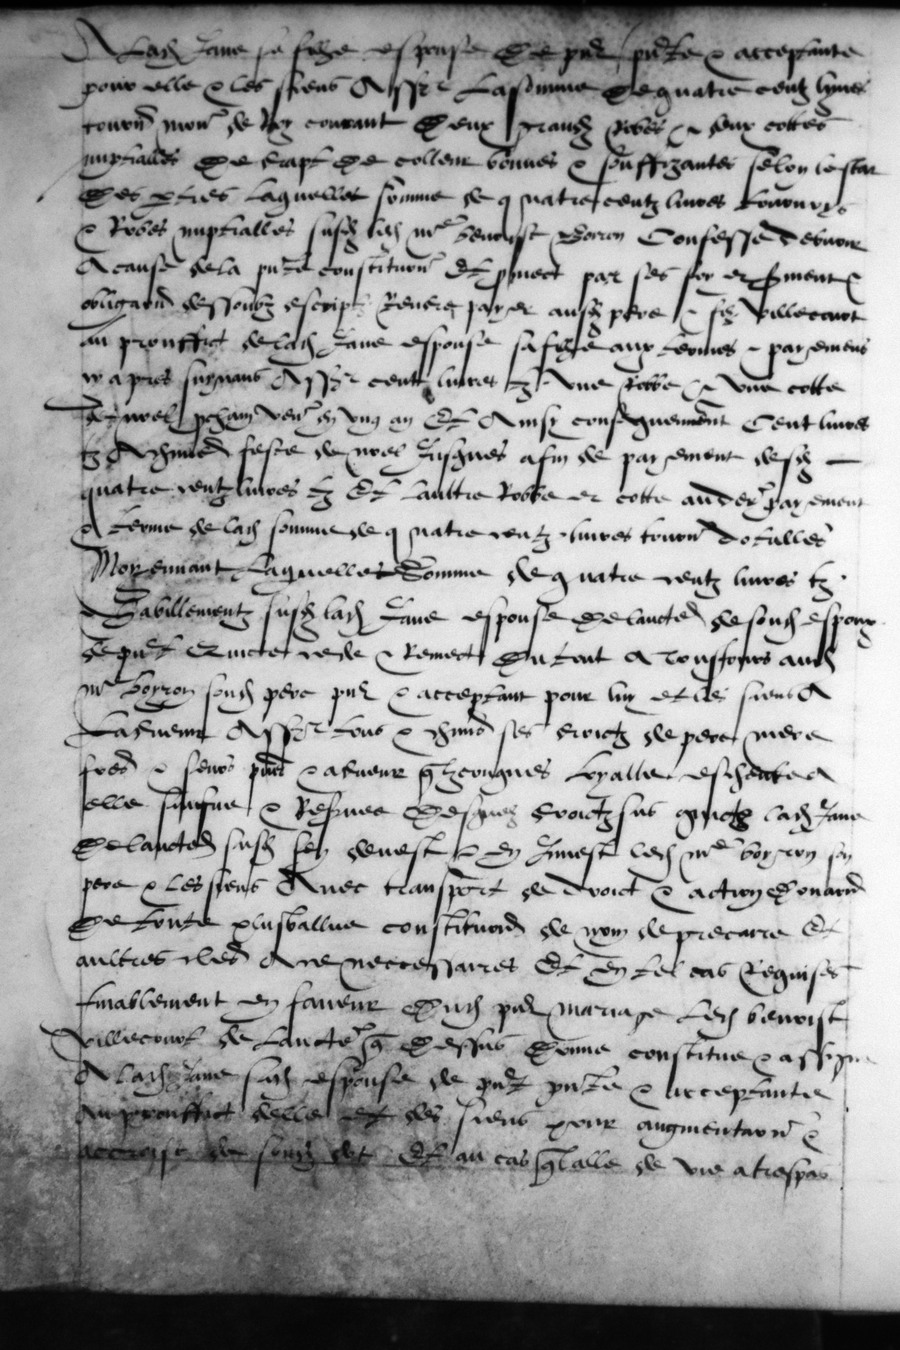 A lad Jane sa fille espouse de pnt pnte & acceptante
pour elle & les siens Assr la somme de quatre centz livres
tourn monn de Roy courant deux grandz Robes & deux cottes
nuptialles de drapt de colleur bonnes & souffizantes selon lestat
des pties laquelles somme de quatre centz livres tournoys
& Robes nuptialles susd led me benoist Confesse debvoir
A cause de la pnte constitution Et pmect par ses foy et serment &
obligation dessoubz escripte Rendre payer ausd pere & filz Villecourt
au prouffict de lad Jane espouse sa fille aux termes & payemens
cy apres suyvans Assr cent livres tz une Robbe & une cotte
de noel pcham ven en ung an Et Ainsy consequemment Cent livres
tz A chune feste de noel Jusques a fin de payement desd
quatre centz livres tz Et laultre Robbe et cotte au der payement
& terme de lad somme de quatre centz livres tourn dotalles
Moyennant laquelles Somme de quatre centz livres tz
habillementz susd lad Jane espouse de laucted de sond espoux
de pnt Quicte cede & Remect du tout A tousjours aud
me boyron sond pere pnt & acceptant pour luy et les siens A
ladvenir Assr tous & chuns ses droictz de pere mere
freres & seurs pns & advenir qlzconques loyalle escheutte A
elle &  Desquelz droictz sus quictez lad Jane
de laucted susd sen devest & en Jnvest led me boyron son
pere & les siens Avec transport de droict & action donaon
de toute plusvallue constitution de nom de precaire Et
aultres cles A ce neccessaires Et en tel cas Requises
finablement en faveur dud pnt mariage led benoist
Villecourt de lauctte q dessus donne constitue & assigne
A lad Jane sad espouse de pnt pnte & acceptante
Au prouffict delle et des siens pour augmentation &
accroist de sond dot Et au cas qlalle de vie a trespas